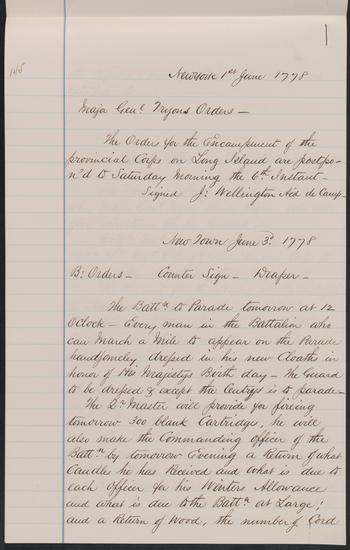 New York 1st June 1778
Major Genl. Tryons Orders —
The Order for the Encampment of the
provincial Corps on Long Island are postpo-
n'd to Saturday Morning the 6th Instant —
Signed J: Wellington Aid de Camp —
New Town June 3d. 1778
B: Orders — Counter Sign — Draper —
The Battn. to Parade tomorrow at 12
OClock — Every man in the Battalion who
can March a Mile to appear on the Parade
handsomeley dressed in his new Cloaths in
honor of His Majestys Birth day — the Guard
to be dressed & except the Centrys is to parade —
The Qr. Master will provide for fireing
tomorrow 300 blank Cartridge, he will
also make the Commanding officer of the
Battn. by tomorrow Evening a Return of what
Candles he has Received and what is due to
each Officer for his Winters Allowance
and what is due to the Battn. at Large;
and a Return of Wood, the number of Cord